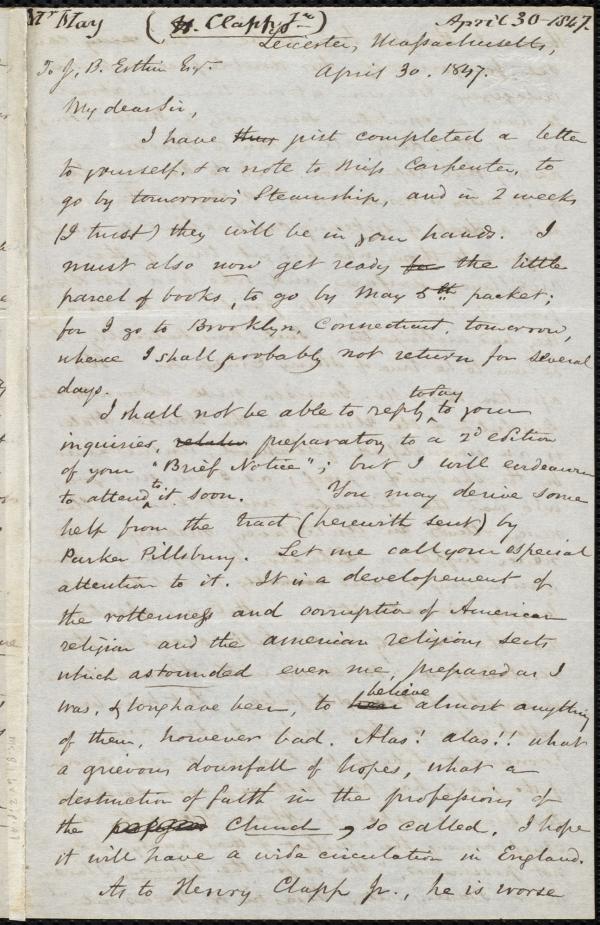 Mr May (H. Clapp Jr.) April 30 1847.
Leicester, Massachusetts,
To J. B. Estlin Esq. April 30. 1847.
My dear Sir,
I have just completed a letter
to yourself, & a note to Miss Carpenter, to
go by tomorrow's Steamship, and in 2 weeks
(I trust) they will be in your hands. I
must also now get ready for the little
parcel of books, to go by May 5th packet;
for I go to Brooklyn, Connecticut, tomorrow,
whence I shall probably not return for several
days.
I shall not be able to reply today to your
inquiries, preparatory to a 2d edition
of your "Brief Notice"; but I will endeavour
to attend to it soon. You may derive some
help from the tract (herewith sent) by
Parker Pillsbury. Let me call your especial
attention to it. It is a developement of
the rottenness and corruption of American
religion and the american religious sects
which astounded even me, prepared as I
was, & long have been, to believe almost anything
of them, however bad. Alas! alas!! what
a grievous downfall of hopes, what a
destruction of faith in the professions of
the Church, so called. I hope
it will have a wide circulation in England.
As to Henry Clapp Jr., he is worse